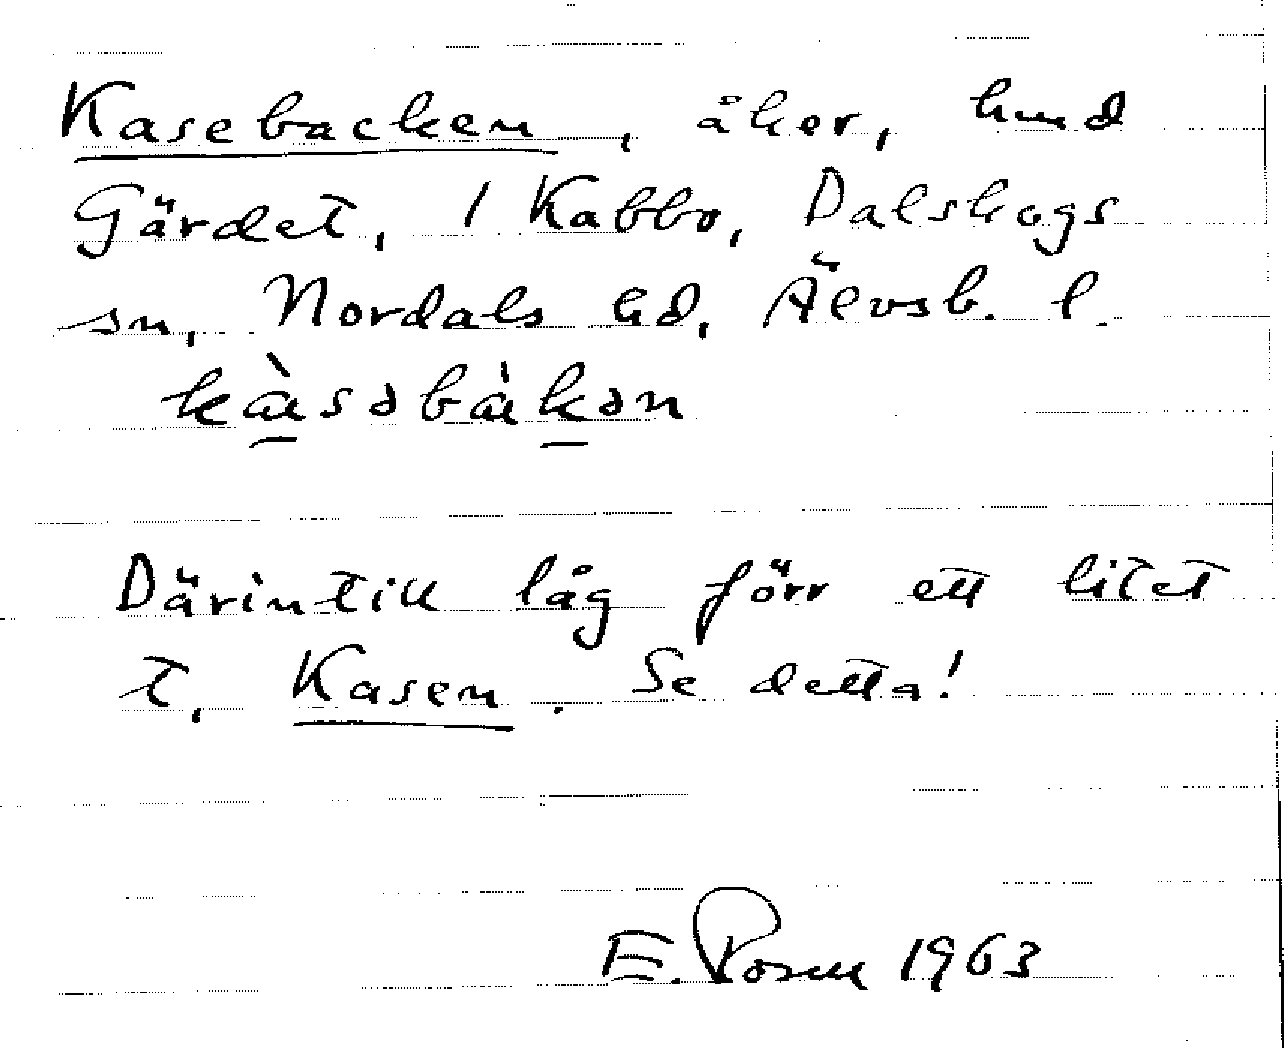 Kasebacken, åker, hmd
Gärdet, 1 Kabbo, Dalskogs
sn, Nordals hd, Älvsb. l.
kàsəbàkən
Därintill låg förr ett litet
t, Kasen. Se detta!
E. 1963